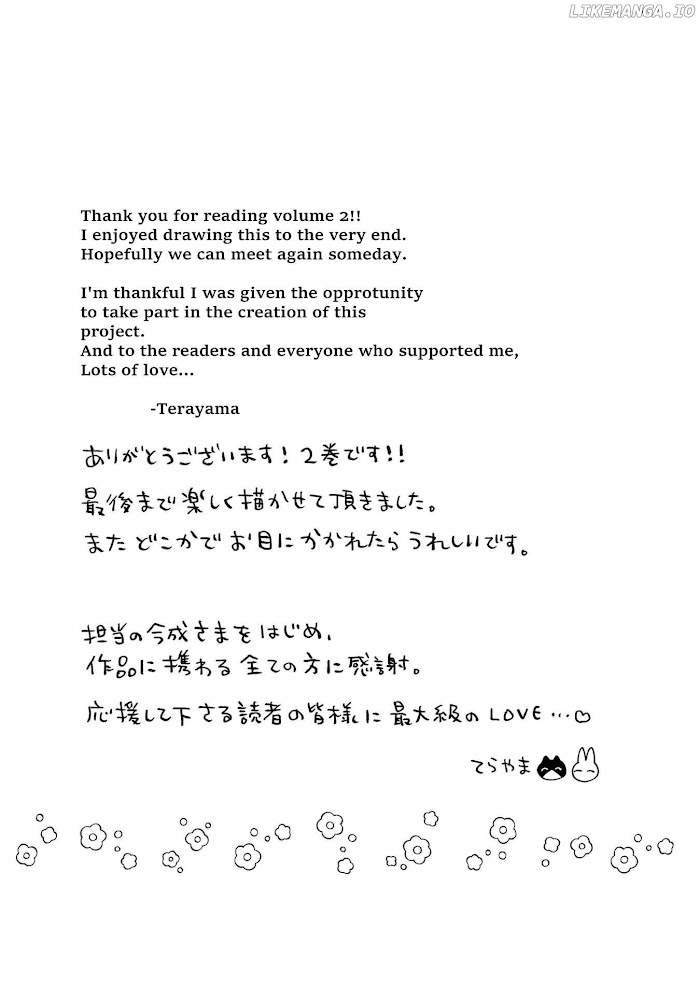 LIKEMANGA.IO
Thank you for reading volume 2!!
I enjoyed drawing this to the very end.
Hopefully we can meet again someday.
I'm thankful I was given the opprotunity
to take part in the creation of this
project.
And to the readers and everyone who supported me,
Lots of love...
-Terayama
ありがとうございます！2巻です!!
最後まで楽しく描かせて頂きました。
またどこかでお目にかかれたらうれしいです。
担当の今成さまをはじめ、
作品に携わる全ての方に感謝。
応援して下さる読者の皆様に最大級のLOVE…♡
てらやま